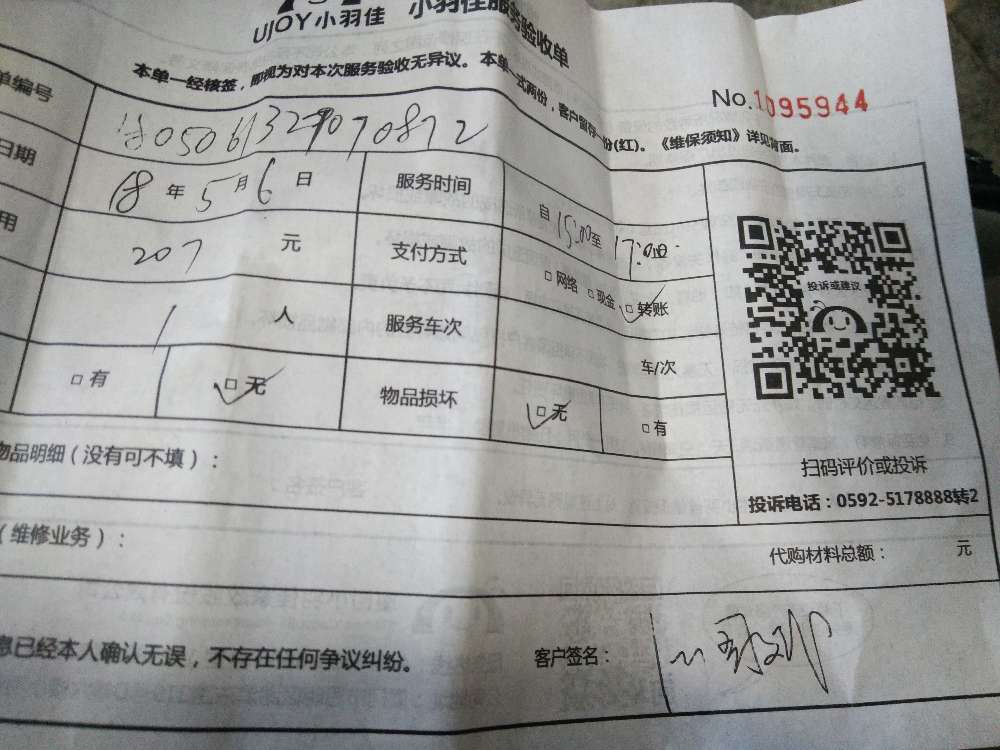 UJOY小羽佳 小羽佳服务验收单
本单一经核签，即视为对本次服务验收无异议。本单一式两份，客户留存一份(红)。《维保须知》详见背面。
No.1095944
单编号
日期 18年5月6日 服务时间 自15:00至17:00
用 207元 支付方式 □网络 □现金 □转账
1人 服务车次 车/次
□有 □无 物品损坏 □无 □有
投诉或建议
扫码评价或投诉
投诉电话：0592-5178888转2
物品明细（没有可不填）：
（维修业务）：
代购材料总额： 元
息已经本人确认无误，不存在任何争议纠纷。 客户签名：